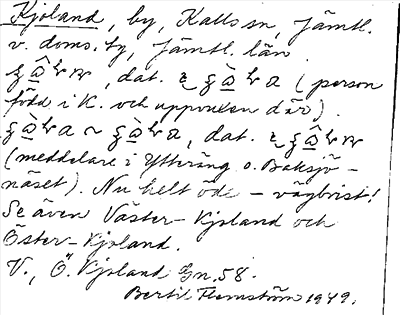 Kjoland, by, Kalls sn, Jämtl.
v. doms., by, Jämtl. län.
dat. (person
född i K. och uppvuxen där).
dat.
(meddelare i Ytteräng o. Baksjö-
näset). Nu helt öde – vägbrist!
Se även Väster-Kjoland och
Öster-Kjoland.
V., Ö. Kjoland Gn, 58.
Bertil Flemström 1949.